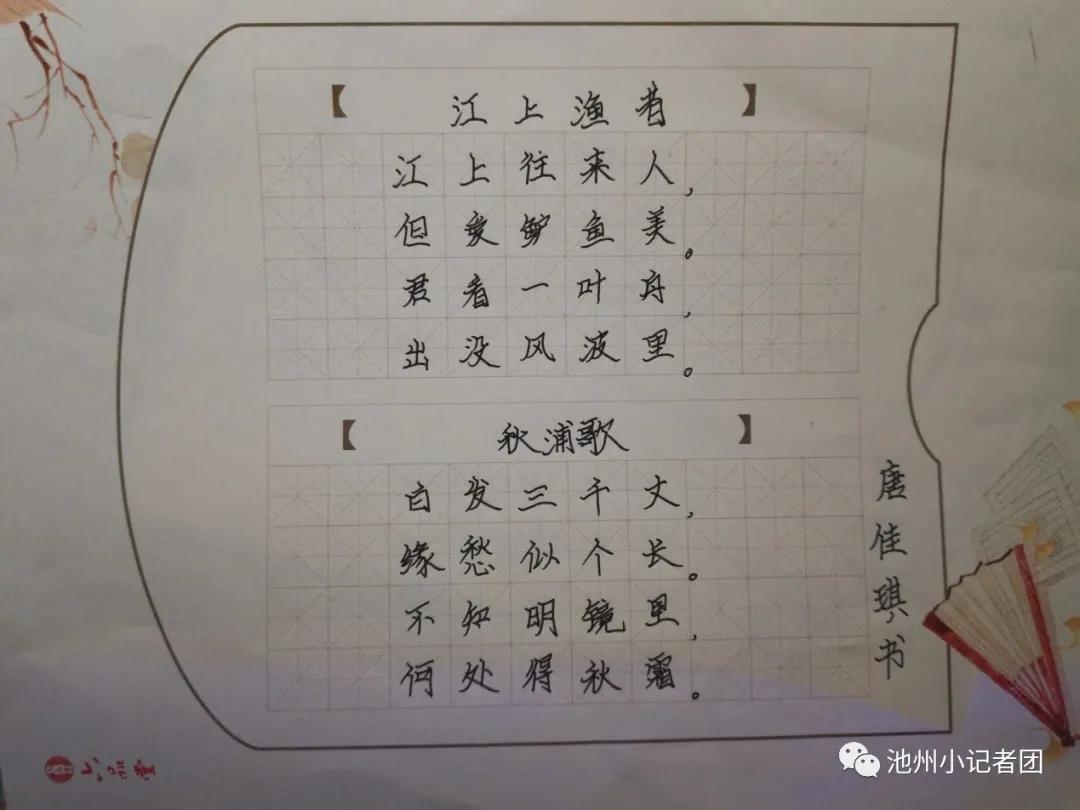 【江上渔者】
江上往来人,
但爱鲈鱼美。
君看一叶舟,
出没风波里。
【秋浦歌】
白发三千丈,
缘愁似个长。
不知明镜里,
何处得秋霜。
唐佳琪书
池州小记者团